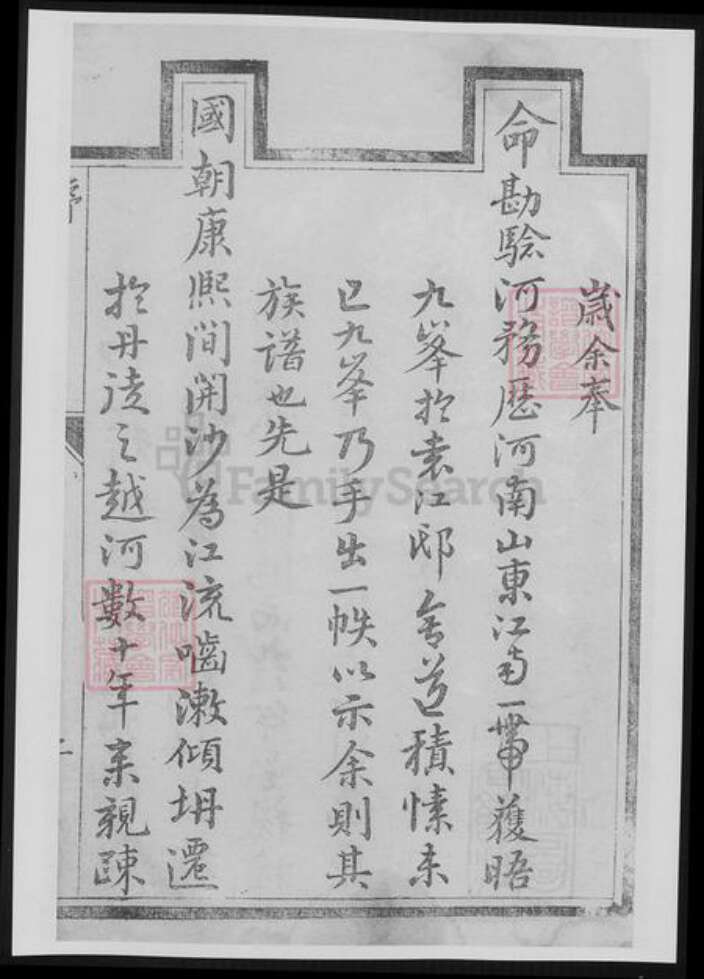 歲余奉
命勘驗河務歷河南山東江南一帶獲晤
九峯於袁江邸舍道積愫未
已九峯乃手出一帙以示余則其
族譜也先是
國朝康熙間開沙為江流嚙潄傾坍遷
於丹徒之越河數十年來親疎
序
二
FamilySearch